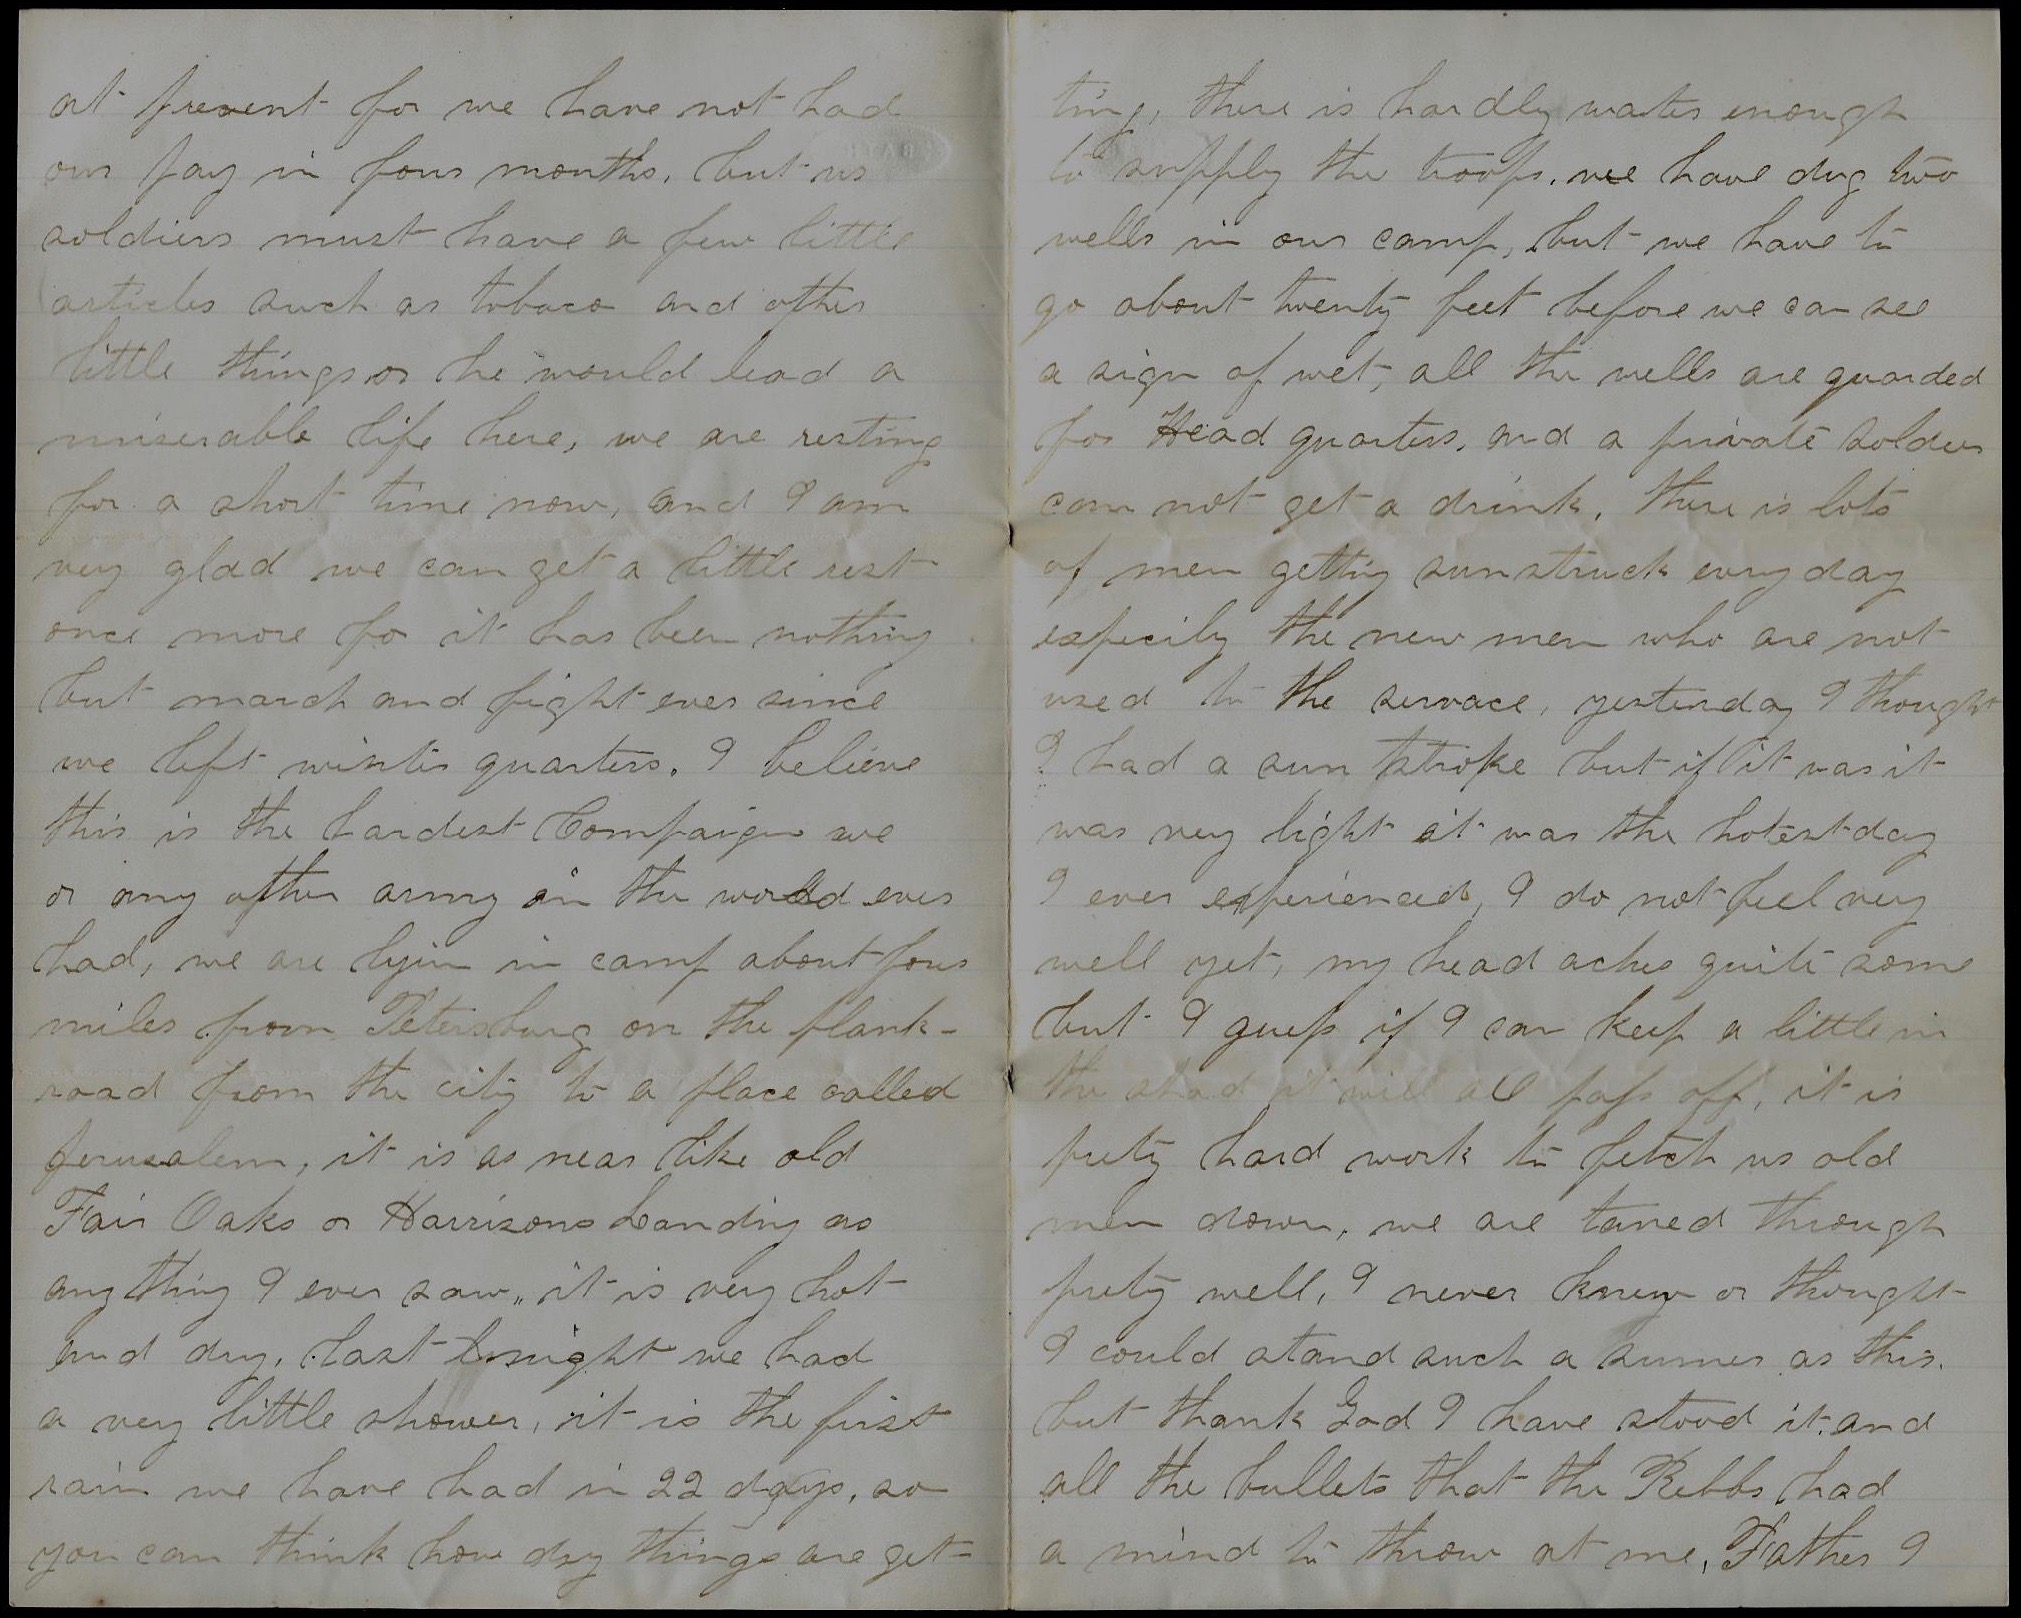 at present for we have not had
our pay in four months, but us
soldiers must have a few little
articles such as tobaco and other
little things or he would lead a
miserable life here, we are resting
for a short time now, and I am
very glad we can get a little rest
once more for it has been nothing
but march and fight ever since
we left winter quarters. I believe
this is the hardest Campaign we
or any other army in the world ever
had, we are lyin in camp about four
miles from Petersburg on the plank-
road from the city to a place called
Jerusalem, it is as near like old
Fair Oaks or Harrisons Landing as
any thing I ever saw,, it is very hot
and dry, last night we had
a very little shower, it is the first
rain we have had in 22 days, so
you can think how dry things are get-
ting, there is hardly water enough
to supply the troops, we have dug two
wells in our camp, but we have to
go about twenty feet before we can see
a sign of wet, all the wells are guarded
for Head quarters, and a private soldier
can not get a drink, there is lots
of men getting sunstruck every day
especily the new men who are not
used to the servace, yesterday I thought
I had a sun stroke but if it was it
was very light it was the hotest day
I ever experienced, I do not feel very
well yet, my head aches quite some
but I guess if I can keep a little in
the shad it will all pass off, it is
prety hard work to fetch us old
men down, we are taned through
prety well, I never knew or thought
I could stand such a sumer as this.
but thank God I have stood it, and
all the bullets that the Rebbs had
a mind to throw at me, Father I